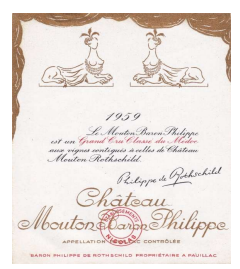 1959
Le Mouton Baron Philippe
est un Grand Cru Classé du Médoc
aux vignes contiguës à celles de Château
Mouton Rothschild.
Philippe de Rothschild
Château
Mouton Baron Philippe
APPELLATION CONTRÔLÉE
BARON PHILIPPE DE ROTHSCHILD PROPRIÉTAIRE A PAUILLAC